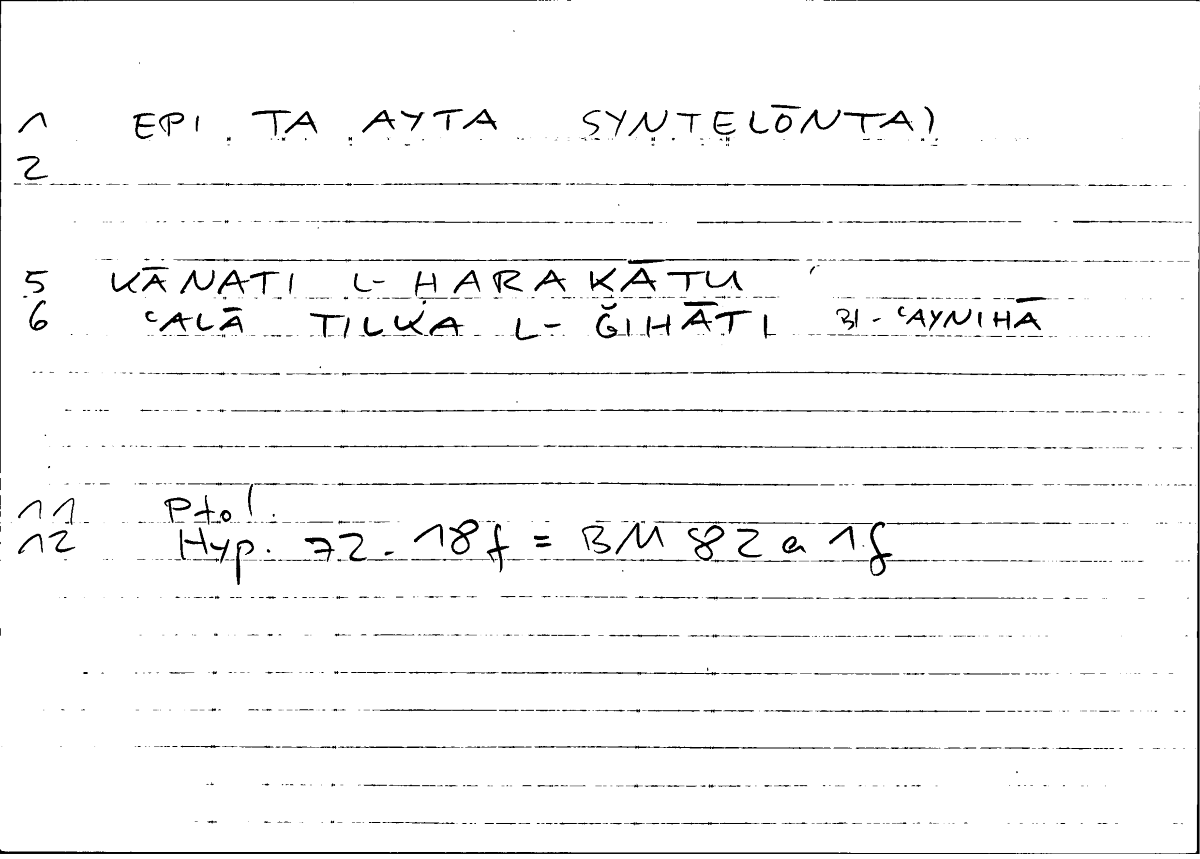 1 EPI TA AYTA SYNTELŌNTAI
2
5 KĀNATI L-HARAKĀTU
6 ʿALĀ TILKA L-ĞIHĀTI BI-ʿAYNIHĀ
11 Ptol.
12 Hyp. 72.18f = BM 82a 1f